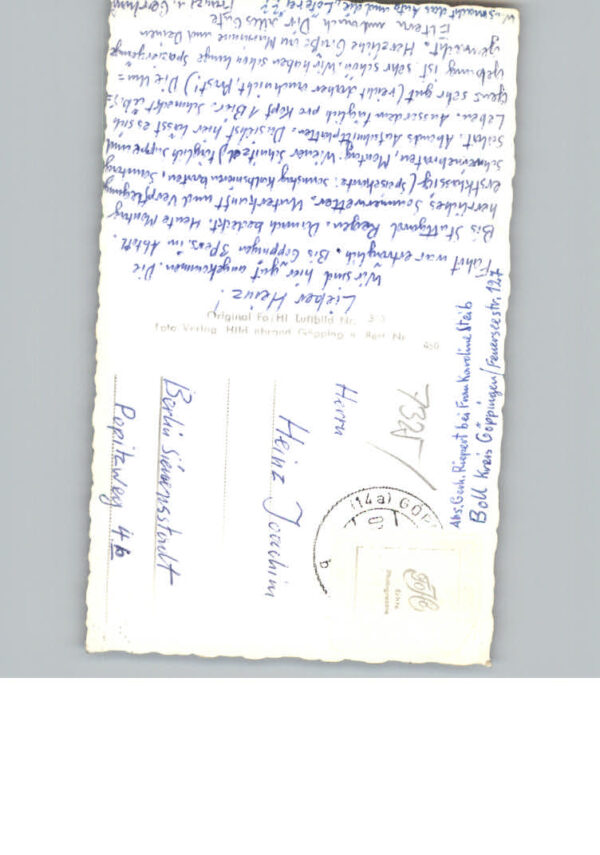 Lieber Heinz!
Wir sind hier gut angekommen. Die
Fahrt war erträglich. Bis Göppingen 3 Pers. in Abteil.
Bis Stuttgard Regen. Danach bedeckt. Heute Montag
herrliches Sommerwetter. Unterkunft und Verpflegung
erstklassig (Speisekarte: Kalbsnierenbraten, Sonntag
Schweinebraten, Montag Wiener Schnitzel) täglich Suppe und
Salat. Abends Aufschnittplatten. Du siehst hier lässt es sich
Leben. Ausserdem täglich pro Kopf 1 Bier. Schmeckt
gens sehr gut (reicht daher auch nicht, Prost!) Die Um=
gebung ist sehr schön. Wir haben schon lange Spaziergänge
gemacht. Herzliche Grüße an und Deinen
Eltern und auch Dir alles Gute
Was macht das Auto und die
Original Fo-Hi Luftbild Nr.
Foto Verlag Hildenbrand Göppingen Best. Nr.
450
7325
Abs. Gerh. Riepert bei Frau Karoline Steib
Boll Kreis Göppingen/Feuerseestr. 127
(14a) GÖPP
b
Herrn
Heinz Joachim
Berlin Siemensstadt
Popitzweg 4b